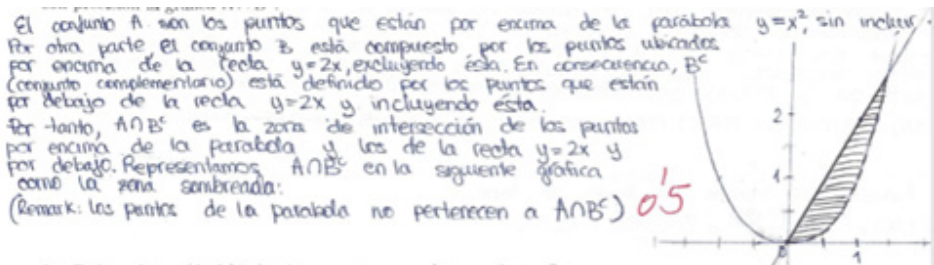 El conjunto A son los puntos que están por encima de la parábola y=x², sin incluir.
Por otra parte, el conjunto B está compuesto por los puntos ubicados
por encima de la recta y=2x, excluyendo ésta. En consecuencia, Bᶜ
(conjunto complementario) está definido por los puntos que están
por debajo de la recta y=2x y incluyendo esta.
Por tanto, A∩Bᶜ es la zona de intersección de los puntos
por encima de la parabola y los de la recta y=2x y
por debajo. Representamos A∩Bᶜ en la siguiente gráfica
como la zona sombreada:
(Remark: los puntos de la parabola no pertenecen a A∩Bᶜ) 0'5
2
1
0 1